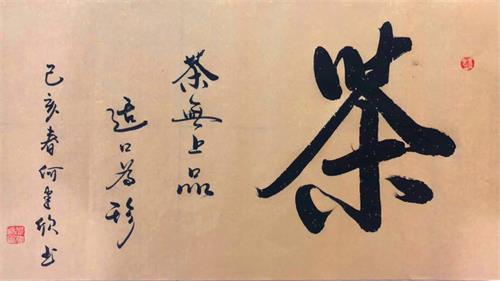 茶
茶無上品
適口為珍
己亥春何建欣书